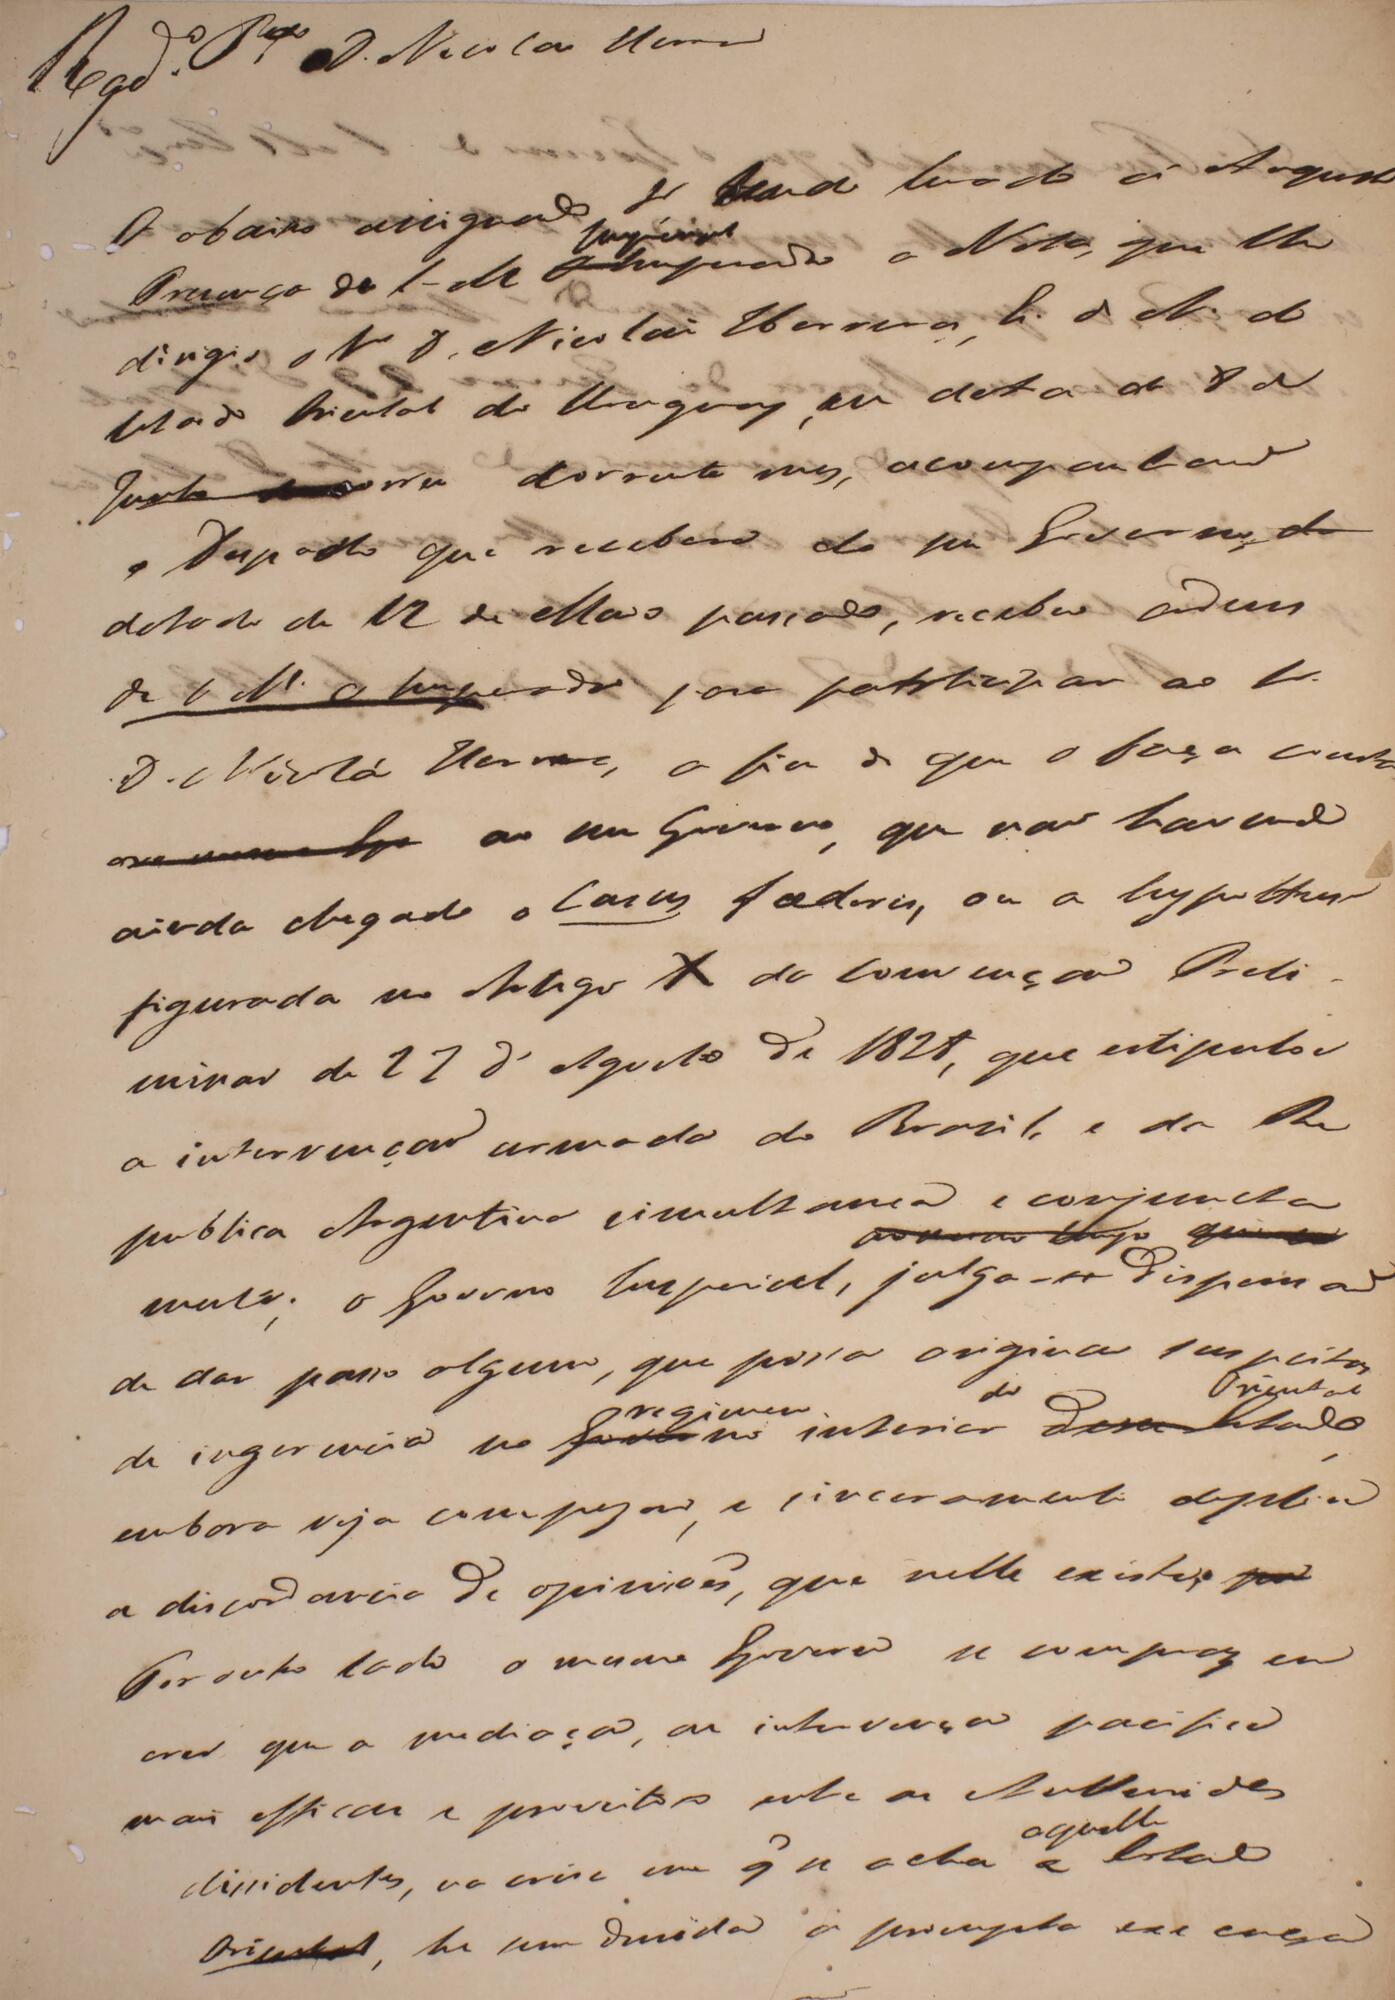 Regd.º D. Nicolao Herrera
O abaixo assignado tendo levado á Augusta
Presença de S. M. Imperial o Imperador a Nota, que lhe
dirigio o Sr. D. Nicoláo Herrera, E. do N. do
Estado Oriental do Uruguay, em data de 8 de
corrente mez, acompanhando
o Despacho que recebera do seu Governo, do
datado de 12 de Maio passado, recebeo ordens
de S. M. o Imperador para participar ao Sr.
D. Nicoláo Herrera, a fim de que o faça constar
ao seu Governo, que nao havendo
ainda chegado o Casus fœderis, ou a hypothese
figurada no Artigo X da Convençaõ Preli-
minar de 27 d'Agosto de 1828, que estipulou
a intervençaõ armada do Brasil, e da Re
publica Argentina simultanea e conjuncta
mente; o Governo Imperial, julga-se dispensado
de dar passo algum, que possa originar suspeitas
de ingerencia no Governo regimen interior do desse Estado Oriental,
embora veja com pezar, e sinceramente deplore
a discordancia de opiniões, que nelle existe, por
Por outro lado o mesmo Governo se compraz em
crer que a mediaçaõ, ou intervençaõ pacifica
mais efficaz e proveitosa entre as Authoridades
dissidentes, na crise em q̃ se acha aquelle o Estado
Oriental, he sem duvida a prompta execuçaõ